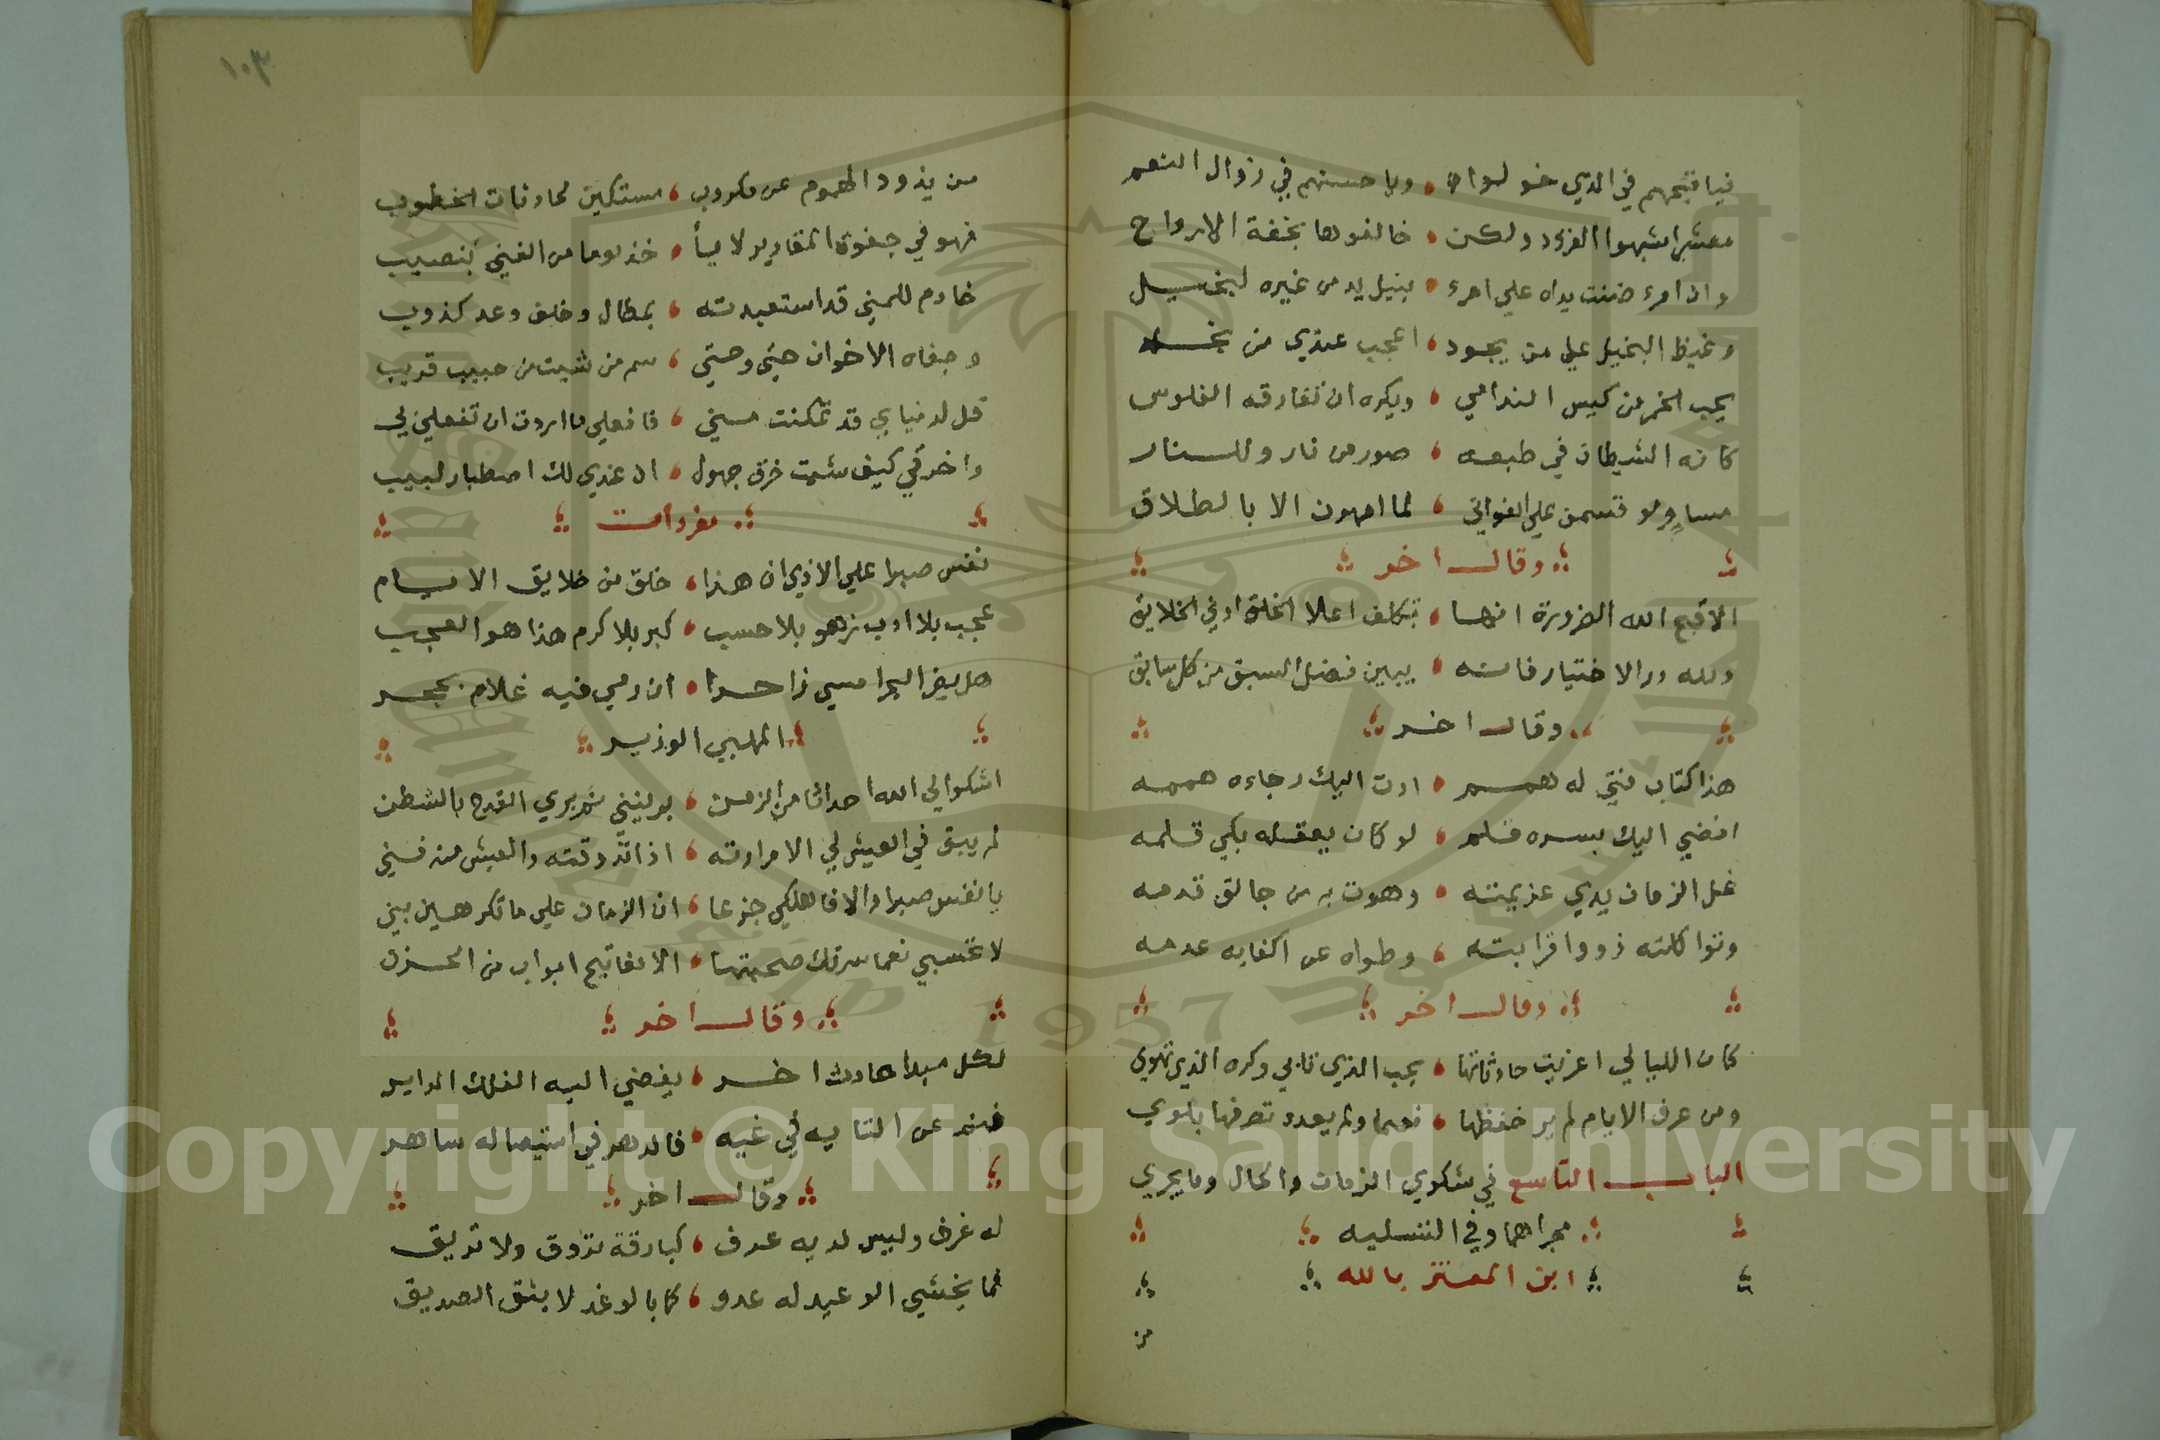 فيا قبحهم في الذي خولوا ويا حسنهم في زوال النعم
معشر اشبهوا القرود ولكن خالفوها بخفة الارواح
وان امرء ضنت يداه علي امرء بنيل يد من غيره لبخيل
وغيظ البخيل علي من يجود اعجب عندي من بخله
يحب الخمر من كيس الندامي ويكره ان تفارقه الفلوس
كانه الشيطان في طبعه صور من نار وللنار
مساو لو قسمن علي الغواني لما امهرن الا بالطلاق
وقال اخر
الا قبح الله الضرورة انها تكلف اعلا الخلق ادني الخلايق
ولله در الاختيار فانه يبين فضل السبق من كل سابق
وقال اخر
هذا كتاب فتي له همم ادت اليك رجاءه هممه
افضي اليك بسره قلم لو كان يعقله بكي قلمه
غل الزمان يدي عزيمته وهوت به من حالق قدمه
وتواكلته ذووا قرابته وطواه عن اكفايه عدمه
وقال اخر
كان الليالي اغريت حادثاتها بحب الذي نابي وكره الذي نهوي
ومن عرف الايام لم ير خفظها نعما ولم يعدد تصرفها بلوي
الباب التاسع في شكوي الزمان والحال وما يجري
مجراهما وفي التسليه
ابن المعتز بالله
من
١٠٣
من يذود الهموم عن مكروب مستكين لحادثات الخطوب
فهو في جفوة المقادير لا يأ خذ يوما من الغني بنصيب
خادم للمني قد استعبدته بمطال وخلف وعد كذوب
وجفاه الاخوان حتي وحتي سم من شيت من حبيب قريب
قل لدنياي قد تمكنت مني فافعلي ما اردت ان تفعلي بي
واخرقي كيف شئت خرق جهول ان عندي لك اصطبار لبيب
مفردات
نفس صبرا علي الاذي ان هذا خلق من خلايق الايام
عجب بلا ادب زهو بلا حسب كبر بلا كرم هذا هو العجب
هل يضر البحر امسي زاخرا ان رمي فيه غلام بحجر
المهلبي الوزير
اشكوا الي الله احداثا من الزمن يبرينني مثل بري القدح بالسفن
لم يبق في العيش لي الا مرارته اذا تذوقته والعيش منه فني
يا نفس صبرا والا فاهلكي جزعا ان الزمان علي ما تكرهين بني
لا تحسبي نعما سرتك صحبتها الا مفاتيح ابواب من الحزن
وقال اخر
لكل مبدا حادث اخر يفضي اليه الفلك الداير
فنم عن التايه في غيه فالدهر في استيصاله ساهر
وقال اخر
له غرض وليس لديه عرف كبارقة تروق ولا تريق
فما يخشي الوعيد له عدو كما بالوعد لا يثق الصديق
Copyright © King Saud University
1957